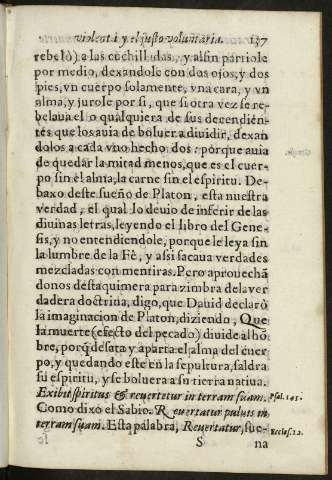 violenta y el justo voluntaria. 137
rebelò) a las cuchilladas, y alfin parriole
por medio, dexandole con dos ojos, y dos
pies, vn cuerpo solamente, vna cara, y vn
alma, y jurole por si, que si otra vez se re-
belaua el o qualquiera de sus decendiẽ-
tès que los auia de boluer a diuidir, dexan
dolos a cada vno hecho dos: porque auia
de quedar la mitad menos, que es el cuer-
po sin el alma, la carne sin el espiritu. De-
baxo deste sueño de Platon, esta nuestra
verdad, el qual lo deuio de inferir de las
diuinas letras, leyendo el libro del Gene-
sis, y no entendiendole, porque le leya sin
la lumbre de la Fè, y assi sacaua verdades
mezcladas con mentiras. Pero aprouechã
donos desta quimera para zimbra de la ver
dadera doctrina, digo, que Dauid declarò
la imaginacion de Platon, diziendo, Que
la muerte (efecto del pecado) diuide al hõ-
bre, porq̃ desata y aparta el alma del cuer-
po, y quedando este en la sepultura, saldra
su espiritu, y se boluera a su tierra natiua.
Exibit spiritus & reuertetur in terram suam. Psal. 145.
Como dixo el Sabio. Reuertatur puluis in
terram suam. Esta palabra, Reuertatur, sue- Eccles. 12.
S na